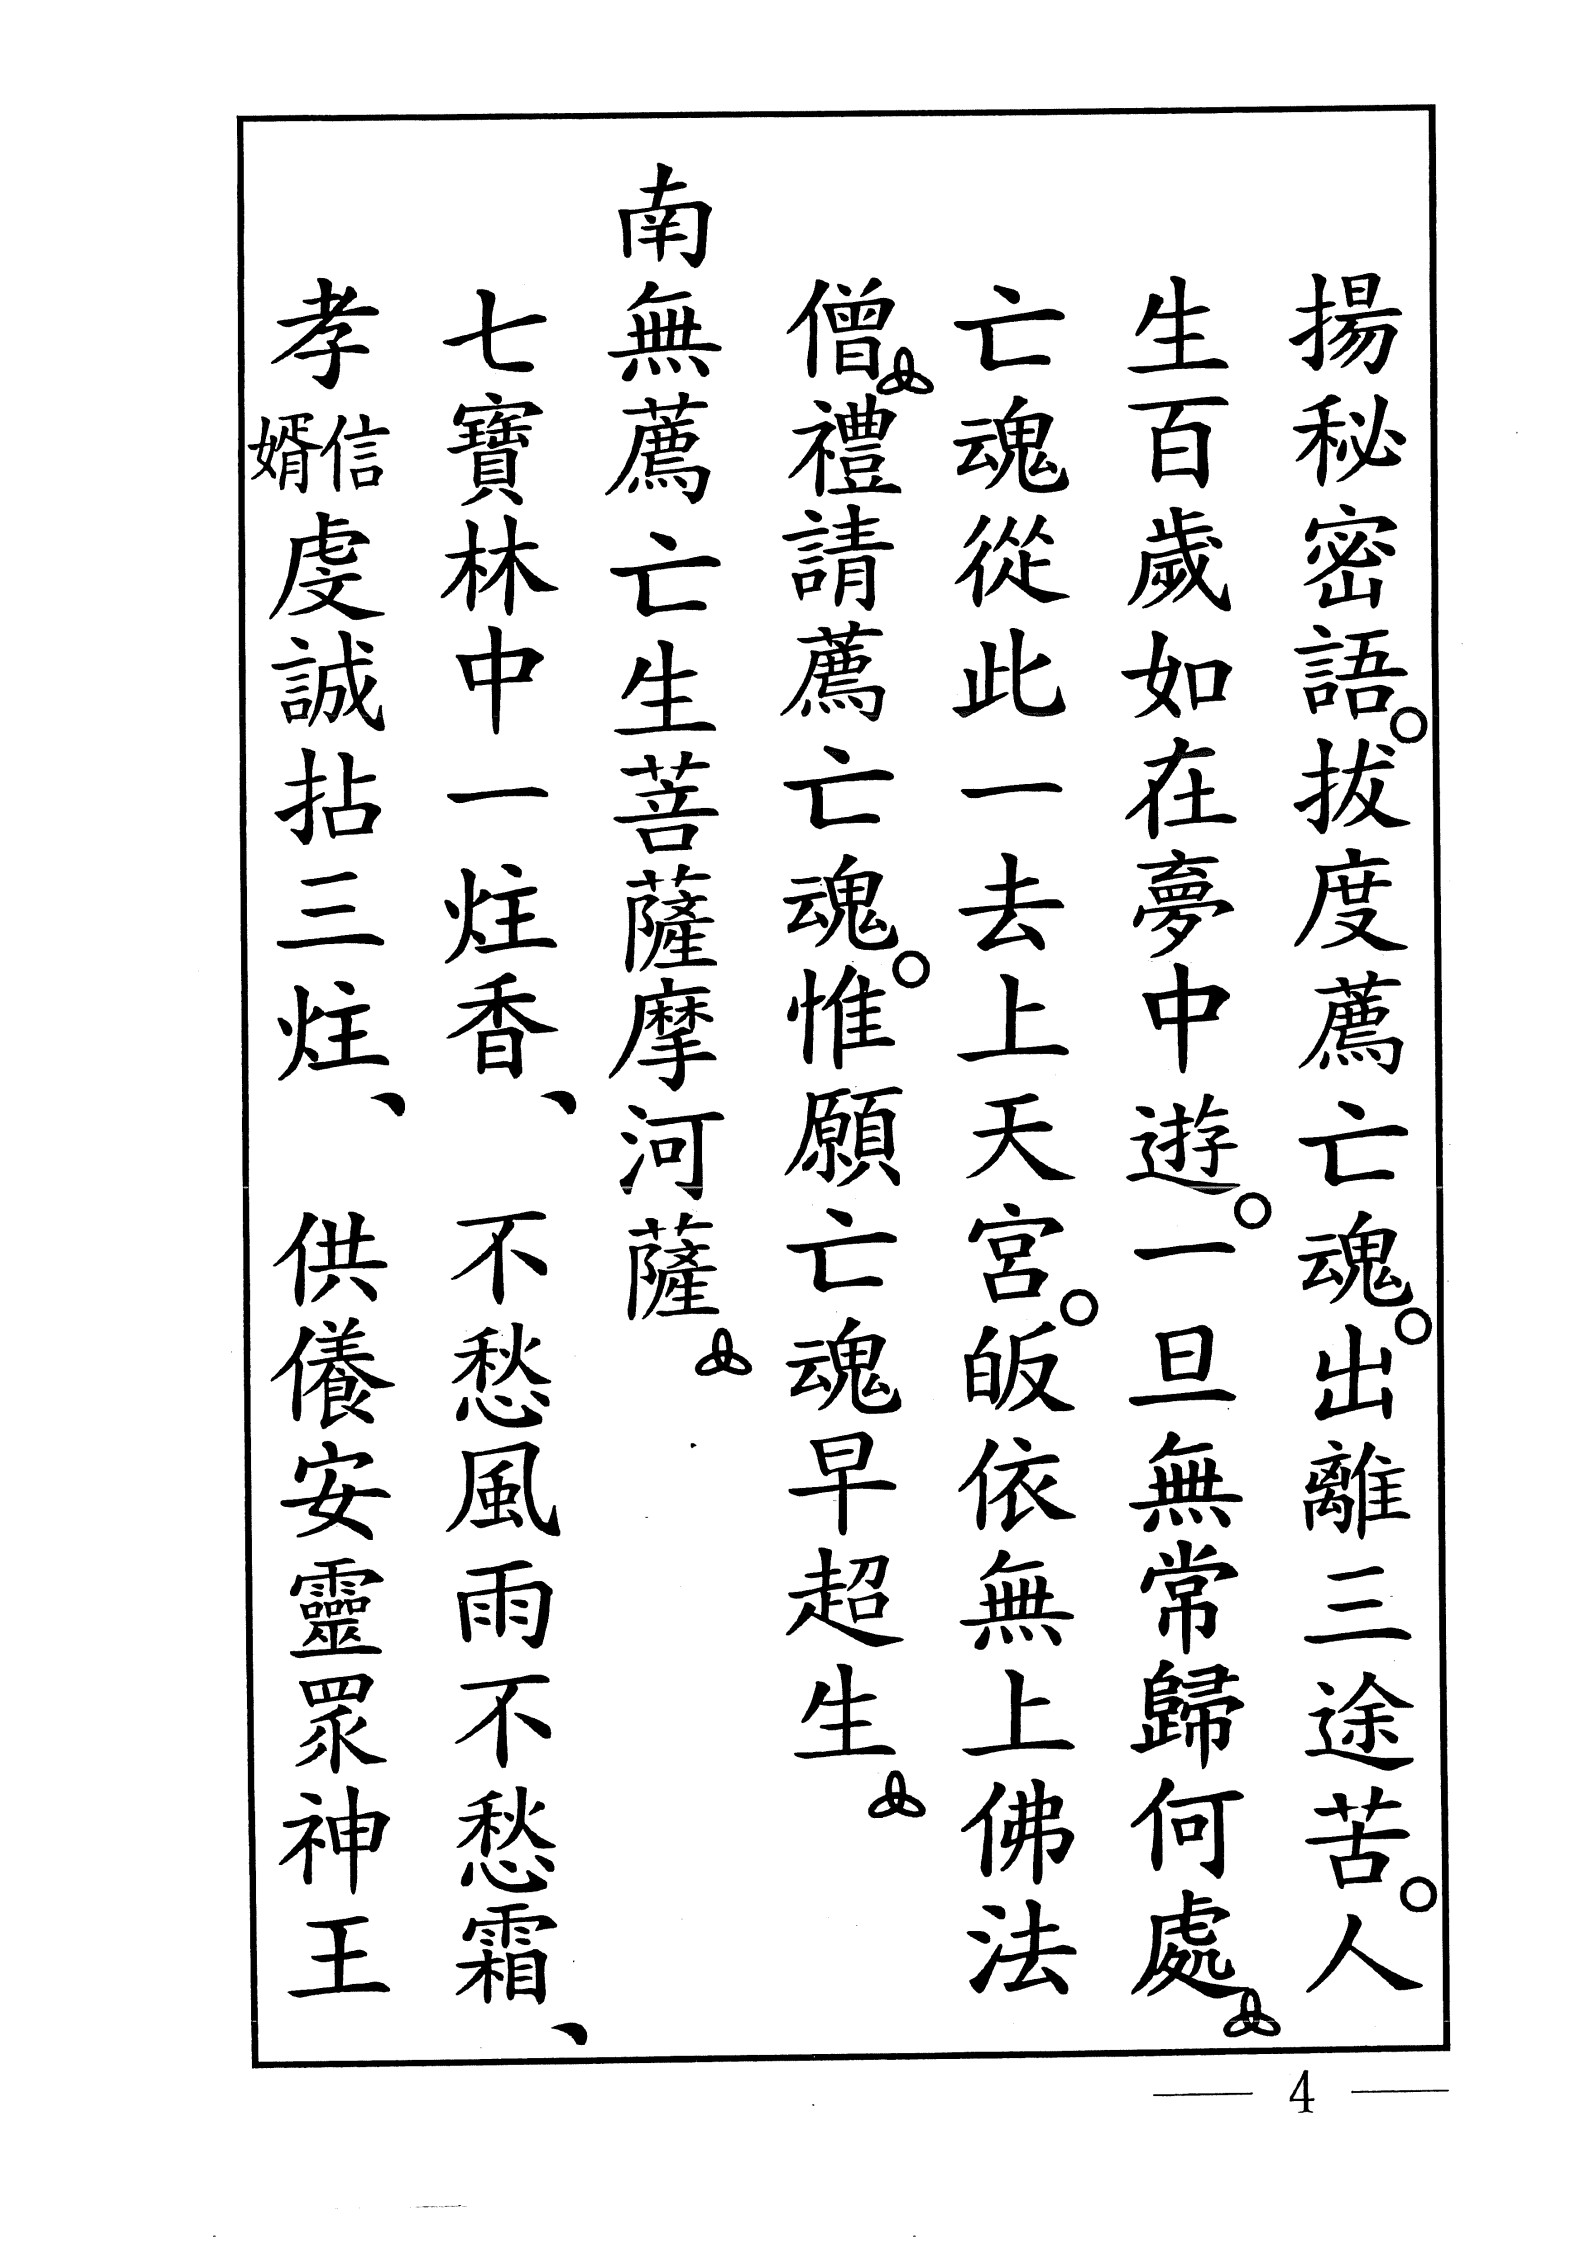 揚秘密語。拔度薦亡魂。出離三途苦。人
生百歲如在夢中遊。一旦無常歸何處
亡魂從此一去上天宮。皈依無上佛法
僧禮請薦亡魂。惟願亡魂早超生
南無薦亡生菩薩摩河薩
七寶林中一炷香、不愁風雨不愁霜、
孝信婿虔誠拈三炷、供養安靈眾神王
4